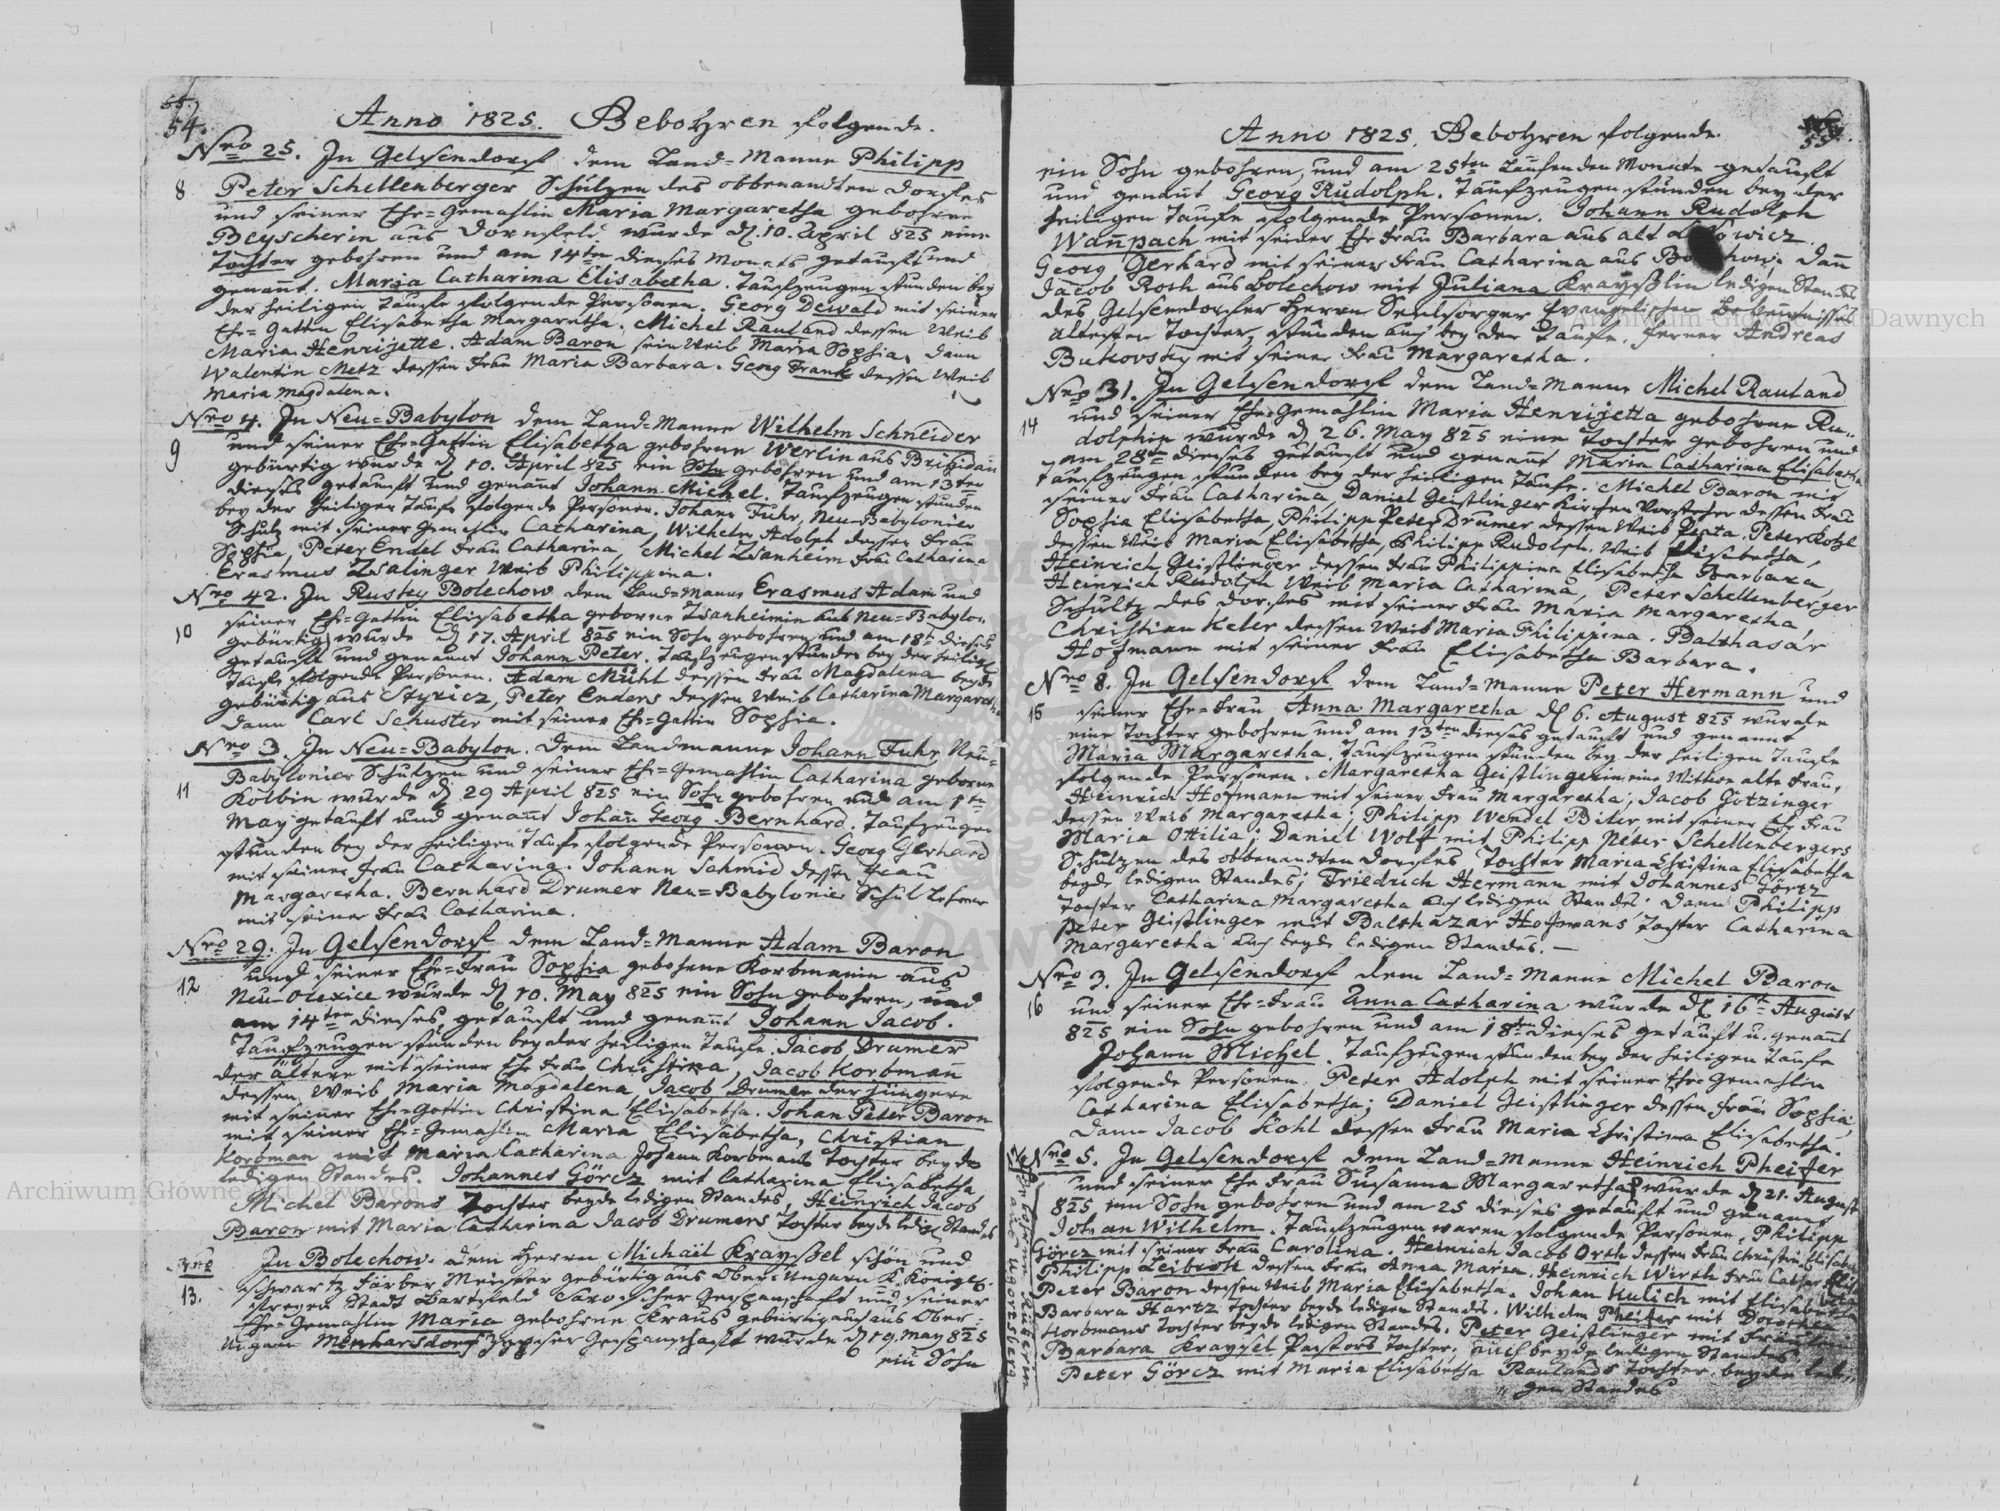 55.
54.
Anno 1825. Gebohren folgende.
Nro 25. In Gelsendorf dem Land=Manne Philipp
8 Peter Schellenberger Schulzen des obbenandten Dorfes
und seiner Ehe=Gemahlin Maria Margaretha gebohrne
Beyscherin aus Dornfeld wurde d. 10. April 825 eine
Tochter gebohren und am 14ten dieses Monats getauft und
genannt. Maria Catharina Elisabetha. Taufzeugen stunden bey
der heiligen Taufe folgende Personen. Georg Dewald mit seiner
Ehe=Gattin Elisabetha Margaretha. Michel Rauland dessen Weib
Maria Henrijette. Adam Baron sein Weib Maria Sophia, dann
Walentin Metz dessen Frau Maria Barbara. Georg Frank dessen Weib
Maria Magdalena.
Nro 4. In Neu=Babylon dem Land=Manne Wilhelm Schneider
9 und seiner Ehe=Gattin Elisabetha gebohrne Werlin aus Brigidau
gebürtig wurde d. 10. April 825 ein Sohn gebohren und am 13ten
dieses getauft und genannt Johann Michel. Taufzeugen stunden
bey der heiligen Taufe folgende Personen. Johann Fuhr, Neu=Babylonier
Schulz mit seiner Gemahlin Catharina, Wilhelm Adolph dessen Frau
Sophia, Peter Endel Frau Catharina, Michel Zsanheim Frau Catharina
Erasmus Zsalinger Weib Philippina.
Nro 42. In Russky Bolechow dem Land=Manne Erasmus Adam und
seiner Ehe=Gattin Elisabetha geborne Zsanheimin aus Neu=Babylon
10 gebürtig wurde d. 17. April 825 ein Sohn gebohren und am 18t dieses
getauft und genannt Johann Peter. Taufzeugen stunden bey der heiligen
Taufe folgende Personen. Adam Mühl dessen Frau Magdalena beyde
gebürtig aus Stryicz, Peter Enders dessen Weib Catharina Margaretha
dann Carl Schuster mit seiner Ehe=Gattin Sophie.
Nro 3. In Neu=Babylon. dem Landmanne Johann Fuhr, Neu=
Babylonier Schulzen und seiner Ehe=Gemahlin Catharina geborne
11 Kolbin wurde d. 29 April 825 ein Sohn gebohren und am 1ten
May getauft und genannt Johann Georg Bernhard, Taufzeugen
stunden bey der heiligen Taufe folgende Personen. Georg Gerhard
mit seiner Frau Catharina. Johann Schmid dessen Frau
Margaretha. Bernhard Drumer Neu=Babylonier Schul Lehrer
mit seiner Frau Catharina.
Nro 29. In Gelsendorf dem Land=Manne Adam Baron
und seiner Ehe=Frau Sophia gebohrne Korbmanin aus
12 Neu-Olexice wurde d. 10. May 825 ein Sohn gebohren, und
am 14ten dieses getauft und genannt Johann Jacob.
Taufzeugen stunden bey der heiligen Taufe. Jacob Drumer
der ältere mit seiner Ehe Frau Christina, Jacob Korbmann
dessen Weib Maria Magdalena Jacob Drumer der Jüngere
mit seiner Ehe=Gattin Christina Elisabetha. Johan Peter Baron
mit seiner Ehe=Gemahlin Maria Elisabetha, Christian
Korbman mit Maria Catharina Johann Korbmans Tochter beyde
ledigen Standes. Johannes Görcz mit Catharina Elisabetha
Michel Barons Tochter beyde ledigen Standes, Heinrich Jacob
Baron mit Maria Catharina Jacob Drumers Tochter beyde ledig. Standes
Nro In Bolechow. dem Herrn Michaël Krayßel schön und
13. schwartz Färber Meister gebürtig aus Ober=Ungarn K. Königl.
freyen Stadt Bartsfeld Saroscher Gespanschaft und seiner
Ehe=Gemahlin Maria gebohrne Kraus gebürtig auch aus Ober=
Ungarn Menharsdorf Zypser Gespanschaft wurde d. 19. May 825
ein Sohn
55.
Anno 1825. Gebohren folgende.
ein Sohn gebohren, und am 25ten Laufenden Monats getauft
und genant Georg Rudolph. Taufzeugen stunden bey der
heiligen Taufe folgende Personen. Johann Rudolph
Wanpach mit seiner Ehe Frau Barbara aus alt
Georg Gerhard mit seiner Frau Catharina aus dann
Jacob Roth aus Bolechow mit Juliana Krayßlin ledigen Standes
des Gelsendorfer Herrn Seelsorger Evangelischen Bekenntnisses
ältesten Tochter, stunden auch bey der Taufe. Ferner Andreas
Bukovsky mit seiner Frau Margaretha.
Nro 31. In Gelsendorf dem Land=Manne Michel Rauland
14 und seiner Ehe=Gemahlin Maria Henrijetta gebohrne Ru=
dolphin wurde d. 26. May 825 eine Tochter gebohren und
am 28ten dieses getauft und genannt Maria Catharina Elisabetha
Taufzeugen stunden bey der heiligen Taufe. Michel Baron mit
seiner Frau Catharina, Daniel Geistlinger Kirchen Vorsteher dessen Frau
Sophia Elisabetha, Philipp Peter Drumer dessen Weib Beata. Peter Kohl
dessen Weib Maria Elisabetha, Philipp Rudolph. Weib Elisabetha,
Heinrich Geistlinger dessen Frau Philippina Elisabetha Barbara,
Heinrich Rudolph Weib Maria Catharina, Peter Schellenberger
Schultz des Dorfes mit seiner Frau Maria Margaretha,
Christian Keler dessen Weib Maria Philippina. Balthasar
Hofmann mit seiner Frau Elisabetha Barbara.
Nro 8. In Gelsendorf dem Land=Manne Peter Hermann und
15 seiner Ehe=Frau Anna Margaretha d. 6. August 825 wurde
eine Tochter gebohren und am 13ten dieses getauft und genannt
Maria Margaretha. Taufzeugen stunden bey der heiligen Taufe
folgende Personen. Margaretha Geistlingerin eine Wittwe alte Frau,
Heinrich Hofmann mit seiner Frau Margaretha; Jacob Götzinger
dessen Weib Margaretha; Philipp Wendel Biler mit seiner Ehe Frau
Maria Ottilia; Daniel Wolf mit Philipp Peter Schellenbergers
Schulzen des obbenandten Dorfes Tochter Maria Christina Elisabetha
beyde ledigen Standes; Friedrich Hermann mit Johannes Görcz
Tochter Catharina Margaretha auch ledigen Standes. Dann Philipp
Peter Geistlinger mit Balthazar Hofmans Tochter Catharina
Margaretha auch beyde ledigen Standes. —
Nro 3. In Gelsendorf dem Land=Manne Michel Baron
16 und seiner Ehe=Frau Anna Catharina wurde d. 16t August
825 ein Sohn gebohren und am 18ten dieses getauft u. genannt
Johann Michel. Taufzeugen stunden bey der heiligen Taufe
folgende Personen. Peter Adolph mit seiner Ehe=Gemahlin
Catharina Elisabetha; Daniel Geistlinger dessen Frau Sophia;
dann Jacob Kohl dessen Frau Maria Christina Elisabetha.
Nro 5. In Gelsendorf dem Land=Manne Heinrich Pheifer
und seiner Ehe Frau Susanna Margaretha wurde d. 21. August
825 ein Sohn gebohren und am 25 dieses getauft und genannt
Johan Wilhelm. Taufzeugen waren folgende Personen, Philipp
Görcz mit seiner Frau Carolina. Heinrich Jacob Orth dessen Frau Christin. Elisabe
Philipp Leibrok dessen Frau Anna Maria. Heinrich Wirth Frau Cathar. Elis
Peter Baron dessen Weib Maria Elisabetha. Johan Kulich mit Elisabetha
Barbara Hartz Tochter beyde ledigen Standes. Wilhelm Pheifer mit Dorothea
Korbmans Tochter beyde ledigen Standes. Peter Geistlinger mit
Barbara Kraysel Pastors Tochter. auch beyde ledigen Standes.
Peter Görcz mit Maria Elisabetha Raulands Tochter. beyde ledi=
gen Standes
aus Ugartsberg
Archiwum Główne Akt Dawnych
Archiwum Główne Akt Dawnych